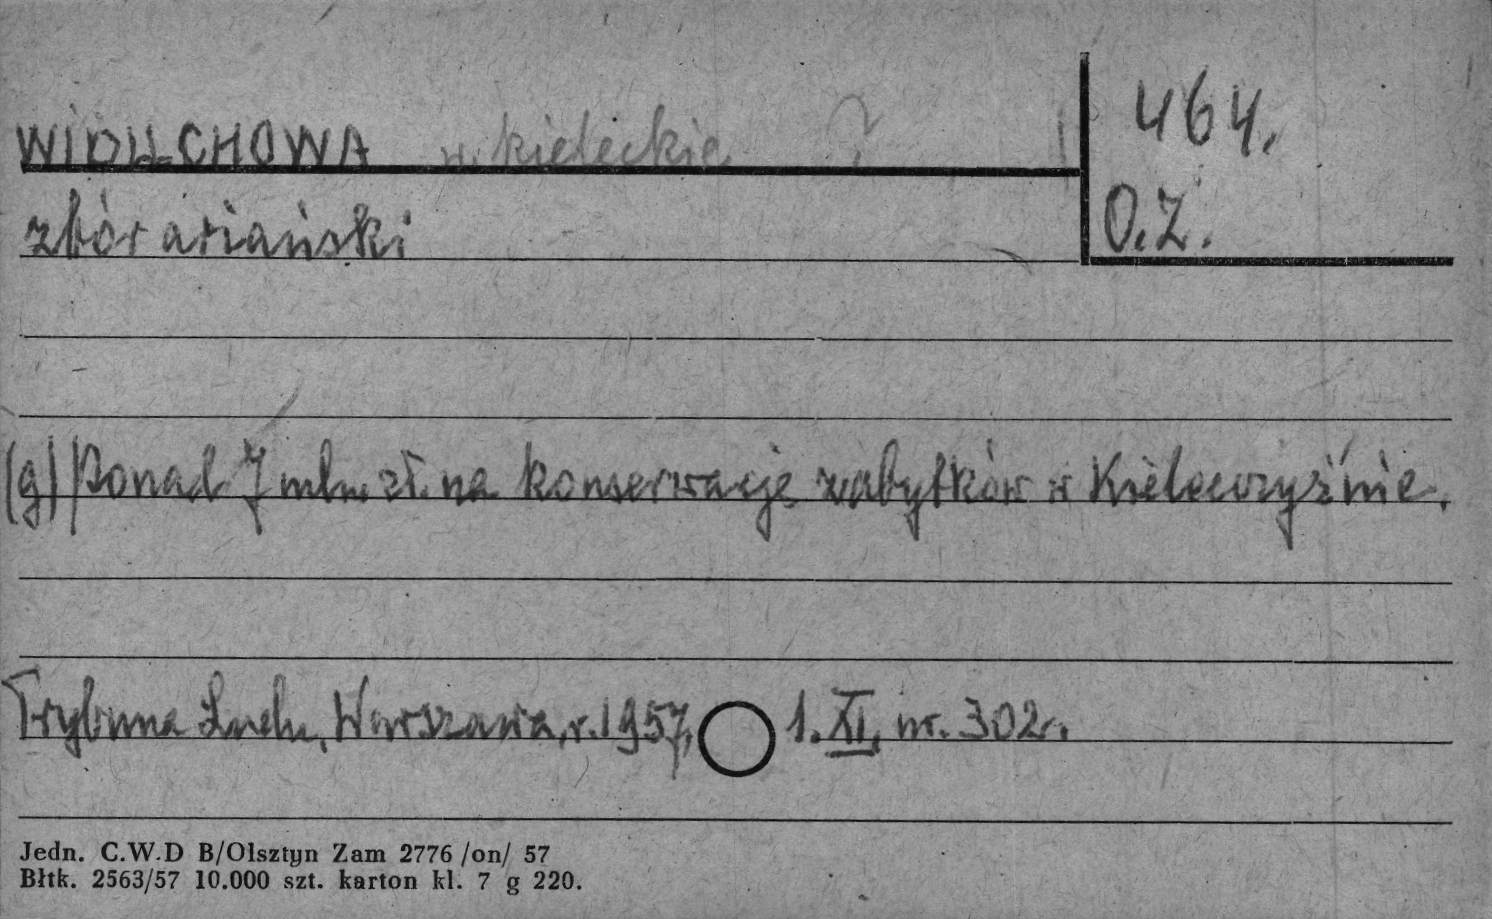 WIDUCHOWA w. kieleckie ?
464.
zbór ariański
O.Z.
(g) Ponad 7 mln. zł. na konserwację zabytków w Kielecczyźnie.
Trybuna Ludu, Warszawa, r. 1957, 1. XI, nr. 302.
Jedn. C.W.D B/Olsztyn Zam 2776 /on/ 57
Błtk. 2563/57 10.000 szt. karton kl. 7 g 220.